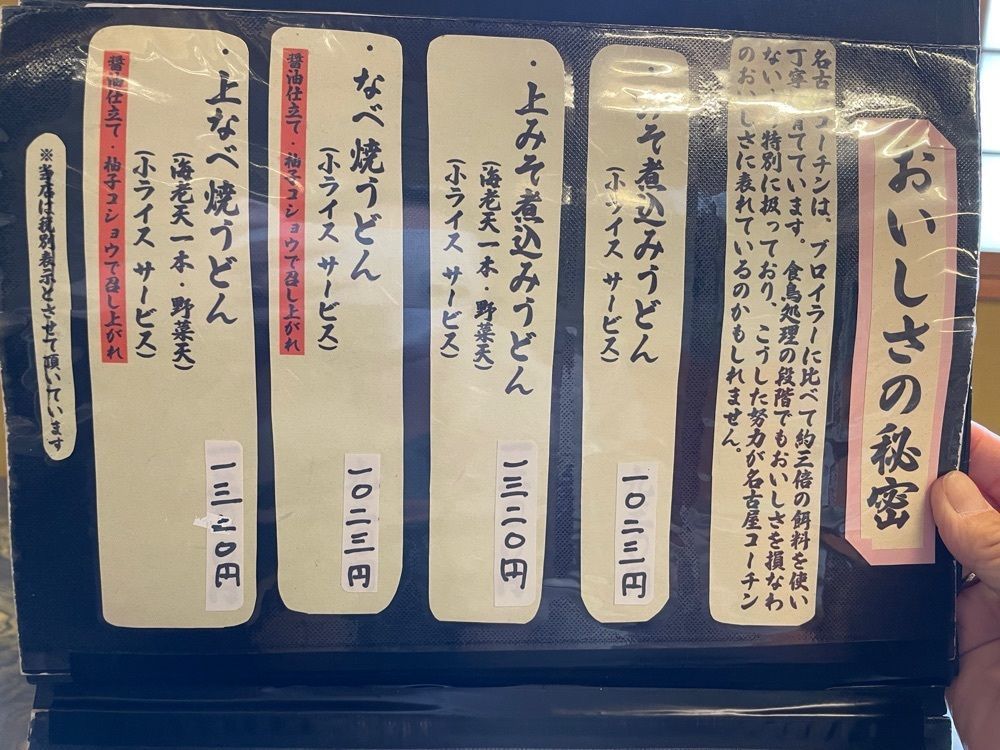 おいしさの秘密
名古 コーチンは、ブロイラーに比べて約三倍の餌料を使い
丁寧 育てています。食鳥処理の段階でもおいしさを損なわ
ない 特別に扱っており、こうした努力が名古屋コーチン
のおいしさに表れているのかもしれません。
・みそ煮込みうどん
(小ライス サービス)
一〇二三円
・上みそ煮込みうどん
(海老天一本・野菜天)
(小ライス サービス)
一三二〇円
・なべ焼うどん
(小ライス サービス)
醤油仕立て・柚子コショウで召し上がれ
一〇二三円
・上なべ焼うどん
(海老天一本・野菜天)
(小ライス サービス)
醤油仕立て・柚子コショウで召し上がれ
一三二〇円
※当店は税別表示とさせて頂いています